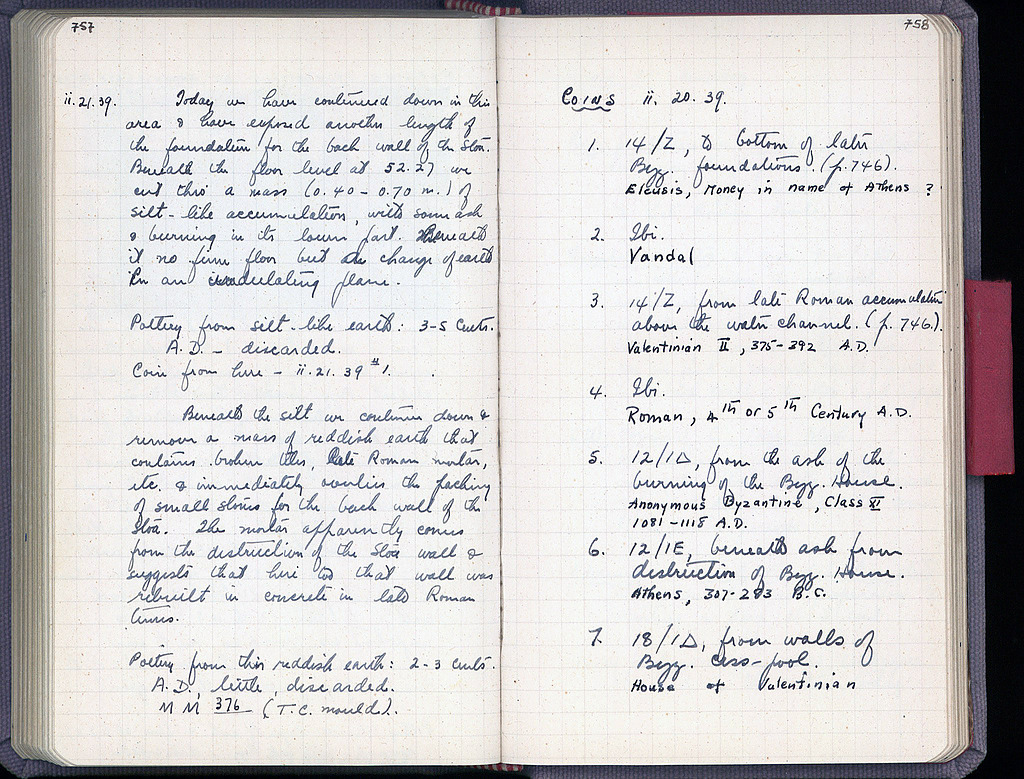 757
ii.21.39. Today we have continued down in this
area & have exposed another length of
the foundation for the back wall of the Stoa.
Beneath the floor level at 52.27 we
cut thro' a mass (0.40 - 0.70 m.) of
silt-like accumulation, with some ash
& burning in its lower part. Beneath
it no firm floor but a change of earth
in an undulating plane.
Pottery from silt-like earth: 3-5 Cents.
A.D. - discarded.
Coin from here - ii.21.39 #1.
Beneath the silt we continue down &
remove a mass of reddish earth that
contains broken tiles, late Roman mortar,
etc. & immediately overlies the packing
of small stones for the back wall of the
Stoa. The mortar apparently comes
from the destruction of the Stoa wall &
suggests that here too that wall was
rebuilt in concrete in late Roman
times.
Pottery from this reddish earth: 2-3 Cents.
A.D., little, discarded.
MM 376 (T.C. mould).
758
Coins ii. 20. 39.
1. 14/Z, bottom of late
Byz. foundations. (p.746).
Eleusis, Money in name of Athens ?
2. Ibi.
Vandal
3. 14/Z, from late Roman accumulation
above the water channel. (p.746).
Valentinian II, 375-392 A.D.
4. Ibi.
Roman, 4th or 5th Century A.D.
5. 12/1Δ, from the ash of the
burning of the Byz. House.
Anonymous Byzantine, Class XI
1081-1118 A.D.
6. 12/1E, beneath ash from
destruction of Byz. House.
Athens, 307-283 B.C.
7. 18/1Δ, from walls of
Byz. cess-pool.
House of Valentinian